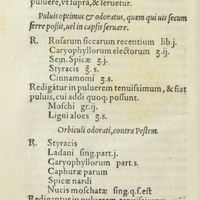 puluere, vt supra, & seruetur.
Puluis optimus & odoratus, quem qui uis secum
ferre possit, uel in capsis seruare.
R. Rosarum siccarum recentium lib j.
Caryophyllorum electorum ʒ.ij.
Sem. Spicæ ʒ.j.
Styracis ʒ.s.
Cinnamomi ʒ.s.
Redigatur in puluerem tenuissimum, & fiat
puluis, cui addi quoq; possunt.
Moschi gr.ij.
Ligni aloes ʒ.s.
Orbiculi odorati, contra Pestem.
R. Styracis
Ladani sing. part. j.
Caryophyllorum part. s.
Caphuræ parum
Spicæ nardi
Nucis moschatæ sing. q. s. est
Redigantur in puluerem